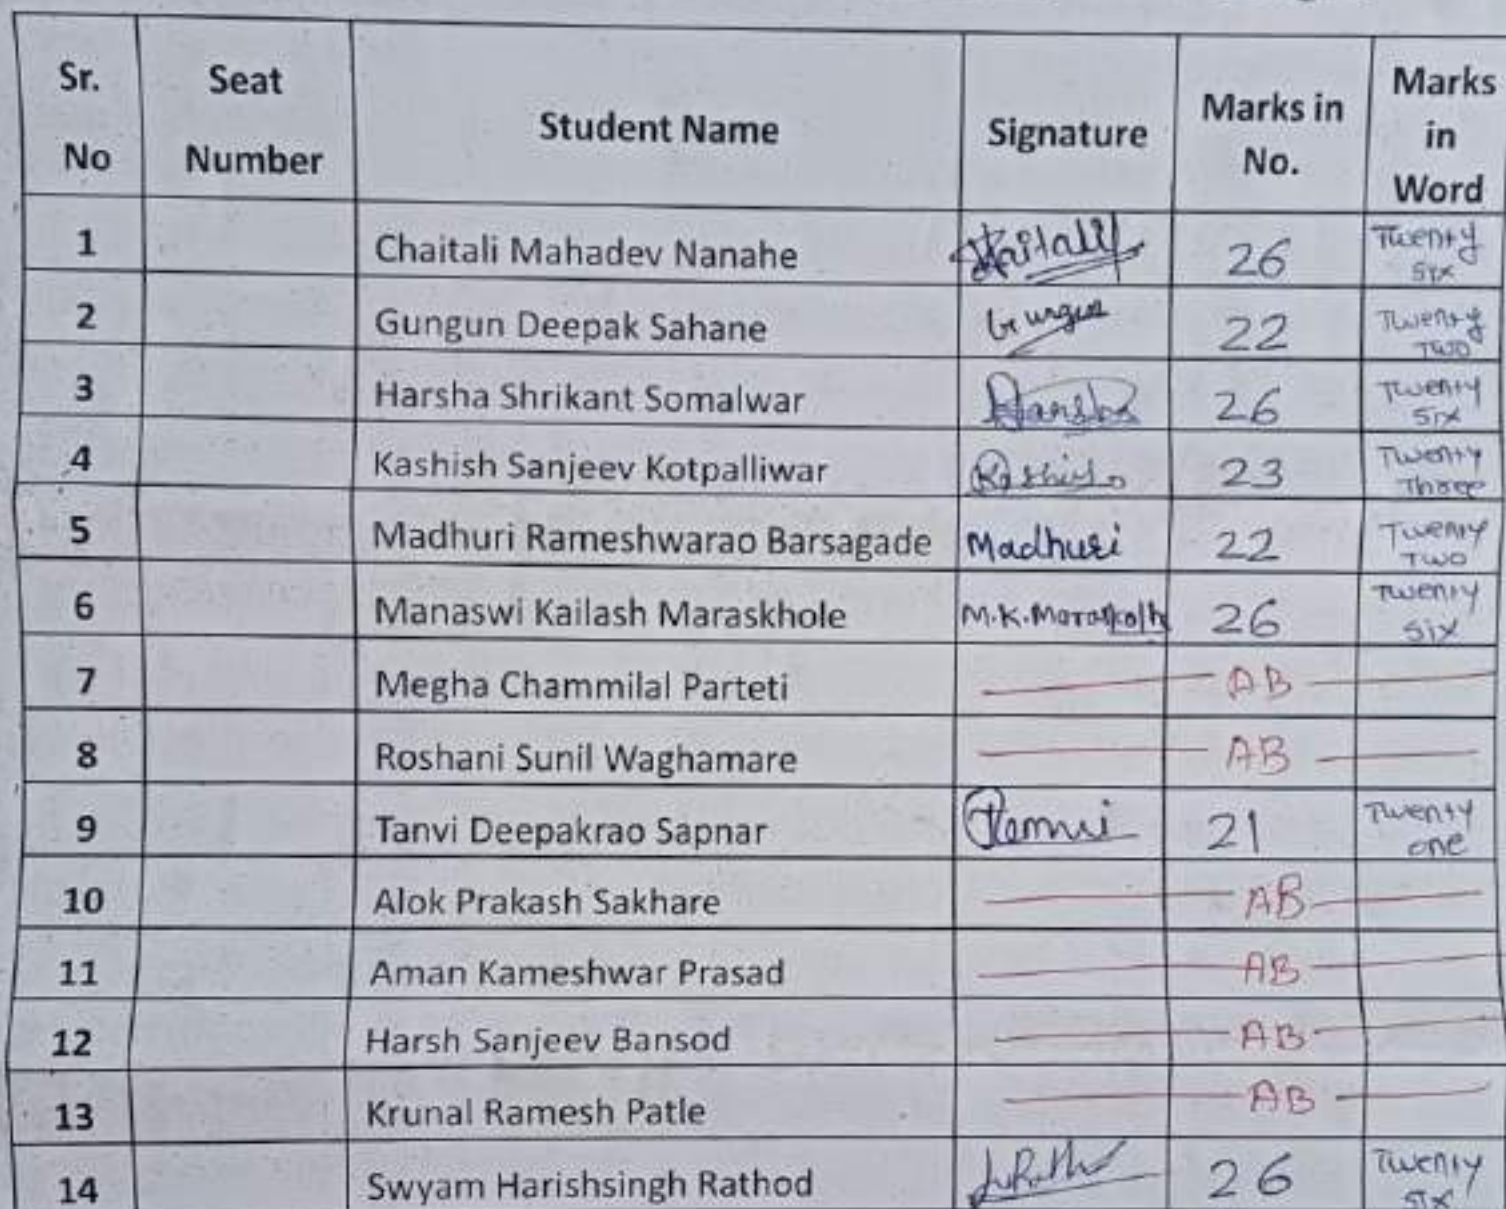 Sr. No Seat Number Student Name Signature Marks in No. Marks in Word
1 Chaitali Mahadev Nanahe Chaitali 26 Twenty six
2 Gungun Deepak Sahane Gungun 22 Twenty Two
3 Harsha Shrikant Somalwar Harsha 26 Twenty six
4 Kashish Sanjeev Kotpalliwar Kashish 23 Twenty Three
5 Madhuri Rameshwarao Barsagade Madhuri 22 Twenty Two
6 Manaswi Kailash Maraskhole M.K. 26 Twenty six
7 Megha Chammilal Parteti AB
8 Roshani Sunil Waghamare AB
9 Tanvi Deepakrao Sapnar 21 Twenty one
10 Alok Prakash Sakhare AB
11 Aman Kameshwar Prasad AB
12 Harsh Sanjeev Bansod AB
13 Krunal Ramesh Patle AB
14 Swyam Harishsingh Rathod 26 Twenty six